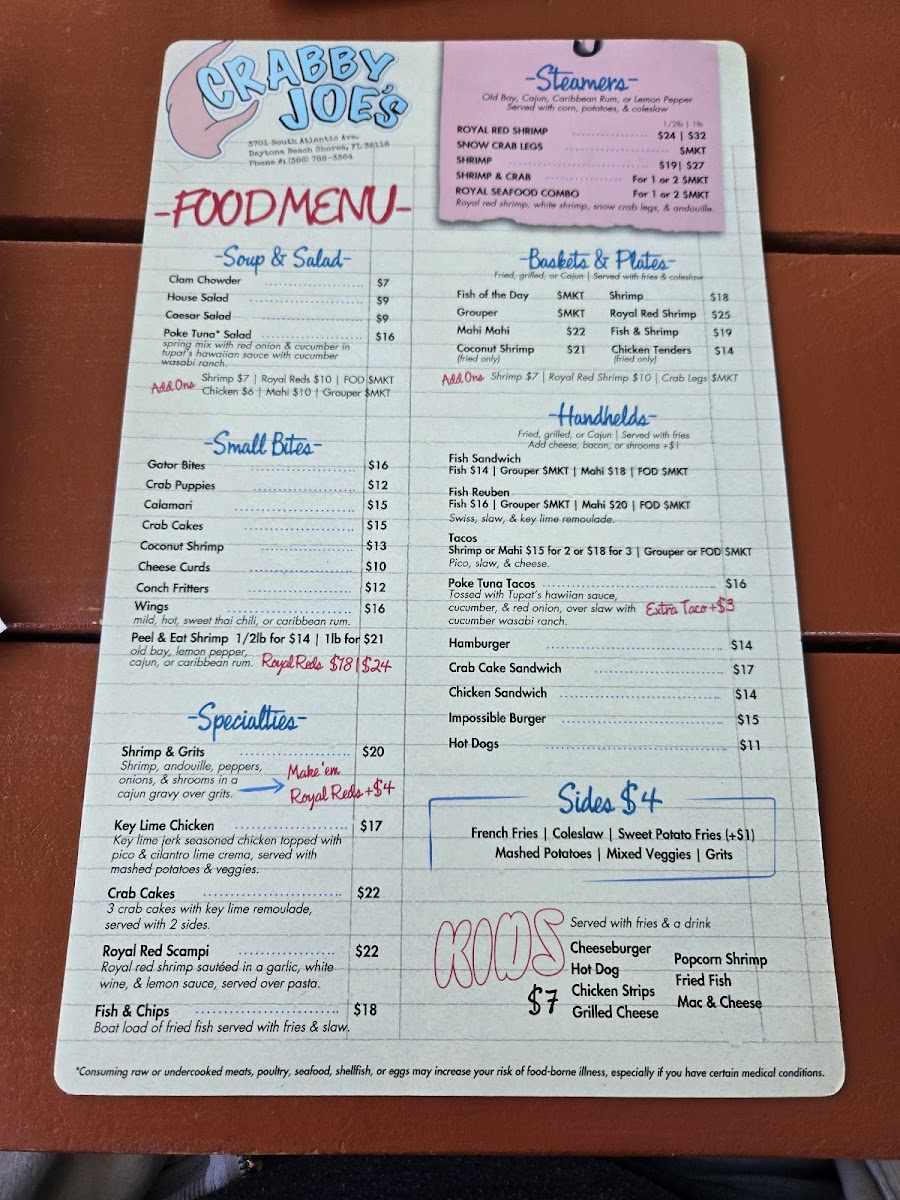 CRABBY
JOE'S
3701 South Atlantic Ave.
Daytona Beach Shores, FL 32118
Phone #: (386) 788-3364
-FOOD MENU-
-Steamers-
Old Bay, Cajun, Caribbean Rum, or Lemon Pepper
Served with corn, potatoes, & coleslaw
1/2lb | 1lb
ROYAL RED SHRIMP $24 | $32
SNOW CRAB LEGS $MKT
SHRIMP $19 | $27
SHRIMP & CRAB For 1 or 2 $MKT
ROYAL SEAFOOD COMBO For 1 or 2 $MKT
Royal red shrimp, white shrimp, snow crab legs, & andouille.
-Soup & Salad-
Clam Chowder $7
House Salad $9
Caesar Salad $9
Poke Tuna* Salad $16
spring mix with red onion & cucumber in
tupat's hawaiian sauce with cucumber
wasabi ranch.
Add Ons Shrimp $7 | Royal Reds $10 | FOD $MKT
Chicken $6 | Mahi $10 | Grouper $MKT
-Small Bites-
Gator Bites $16
Crab Puppies $12
Calamari $15
Crab Cakes $15
Coconut Shrimp $13
Cheese Curds $10
Conch Fritters $12
Wings $16
mild, hot, sweet thai chili, or caribbean rum.
Peel & Eat Shrimp 1/2lb for $14 | 1lb for $21
old bay, lemon pepper,
cajun, or caribbean rum. Royal Reds $18 | $24
-Specialties-
Shrimp & Grits $20
Shrimp, andouille, peppers,
onions, & shrooms in a
cajun gravy over grits.
Make 'em
Royal Reds +$4
Key Lime Chicken $17
Key lime jerk seasoned chicken topped with
pico & cilantro lime crema, served with
mashed potatoes & veggies.
Crab Cakes $22
3 crab cakes with key lime remoulade,
served with 2 sides.
Royal Red Scampi $22
Royal red shrimp sautéed in a garlic, white
wine, & lemon sauce, served over pasta.
Fish & Chips $18
Boat load of fried fish served with fries & slaw.
-Baskets & Plates-
Fried, grilled, or Cajun | Served with fries & coleslaw
Fish of the Day $MKT Shrimp $18
Grouper $MKT Royal Red Shrimp $25
Mahi Mahi $22 Fish & Shrimp $19
Coconut Shrimp $21 Chicken Tenders $14
(fried only) (fried only)
Add Ons Shrimp $7 | Royal Red Shrimp $10 | Crab Legs $MKT
-Handhelds-
Fried, grilled, or Cajun | Served with fries
Add cheese, bacon, or shrooms +$1
Fish Sandwich
Fish $14 | Grouper $MKT | Mahi $18 | FOD $MKT
Fish Reuben
Fish $16 | Grouper $MKT | Mahi $20 | FOD $MKT
Swiss, slaw, & key lime remoulade.
Tacos
Shrimp or Mahi $15 for 2 or $18 for 3 | Grouper or FOD $MKT
Pico, slaw, & cheese.
Poke Tuna Tacos $16
Tossed with Tupat's hawiian sauce,
cucumber, & red onion, over slaw with
cucumber wasabi ranch.
Extra Taco +$3
Hamburger $14
Crab Cake Sandwich $17
Chicken Sandwich $14
Impossible Burger $15
Hot Dogs $11
Sides $4
French Fries | Coleslaw | Sweet Potato Fries (+$1)
Mashed Potatoes | Mixed Veggies | Grits
KIDS
$7
Served with fries & a drink
Cheeseburger
Hot Dog
Chicken Strips
Grilled Cheese
Popcorn Shrimp
Fried Fish
Mac & Cheese
*Consuming raw or undercooked meats, poultry, seafood, shellfish, or eggs may increase your risk of food-borne illness, especially if you have certain medical conditions.